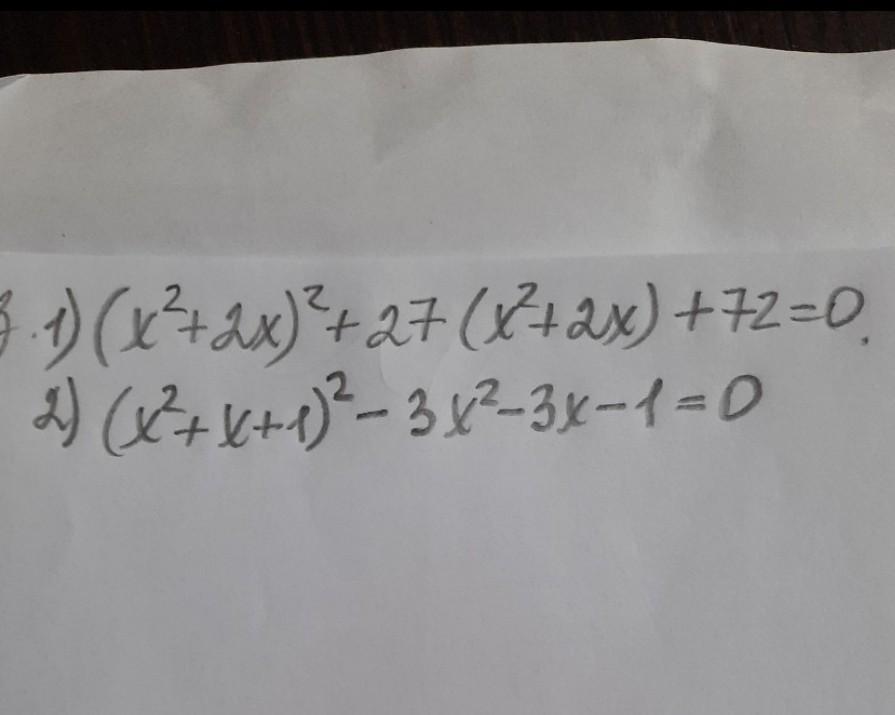 1) (x²+2x)²+27(x²+2x)+72=0.
2) (x²+x+1)²-3x²-3x-1=0